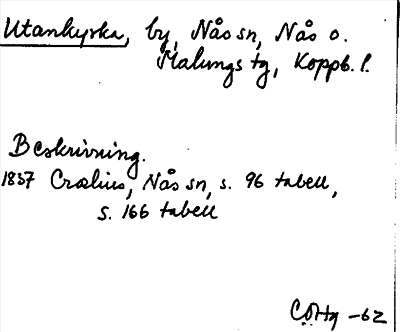 Utankyrka, by, Nås sn, Nås o.
Malungs tg, Koppb. l.
Beskrivning.
1837 Crælius, Nås sn, s. 96 tabell,
s. 166 tabell
-62